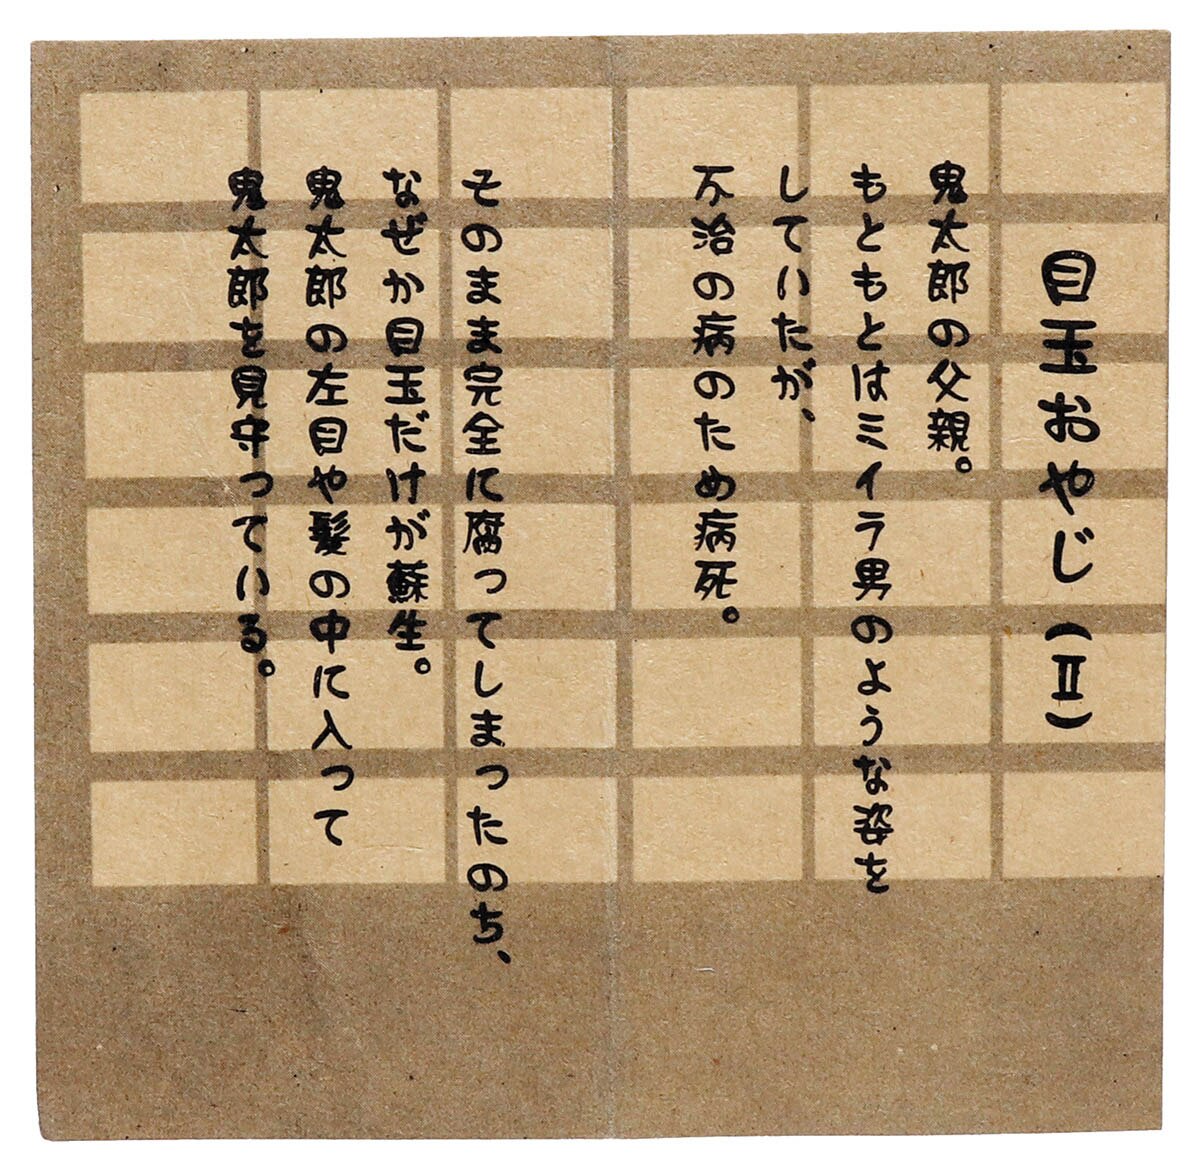 目玉おやじ(Ⅱ)
鬼太郎の父親。
もともとはミイラ男のような姿を
していたが、
不治の病のため病死。
そのまま完全に腐ってしまったのち、
なぜか目玉だけが蘇生。
鬼太郎の左目や髪の中に入って
鬼太郎を見守っている。